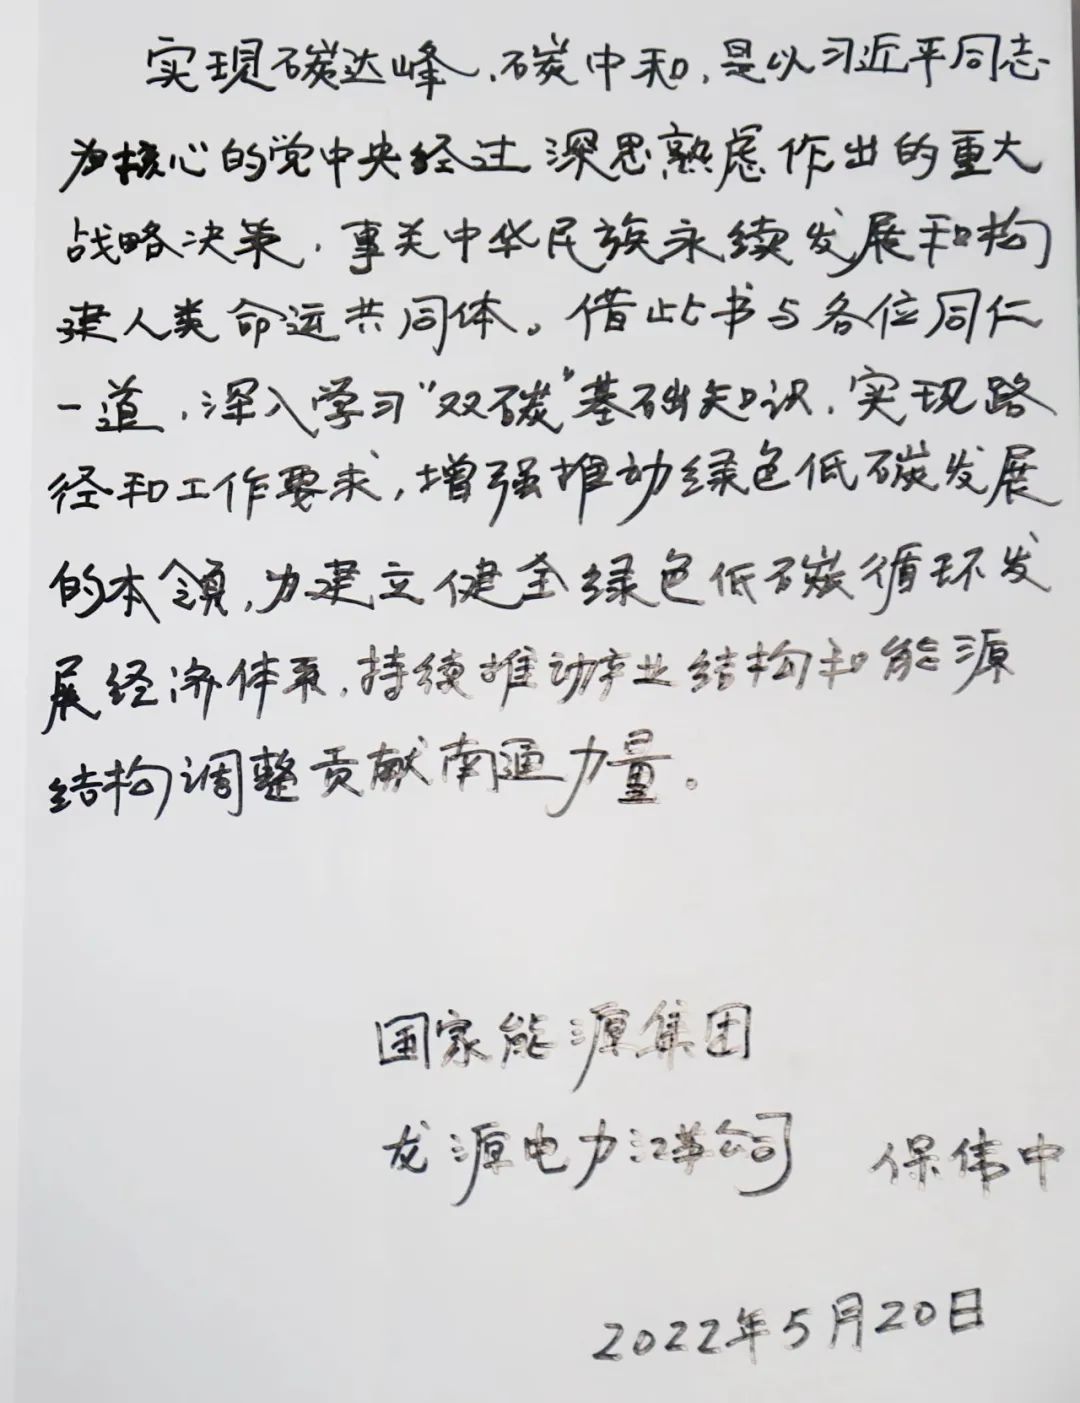 实现碳达峰、碳中和，是以习近平同志
为核心的党中央经过深思熟虑作出的重大
战略决策，事关中华民族永续发展和构
建人类命运共同体。借此书与各位同仁
一道，深入学习“双碳”基础知识，实现路
径和工作要求，增强推动绿色低碳发展
的本领，为建立健全绿色低碳循环发
展经济体系，持续推动产业结构和能源
结构调整贡献南通力量。
国家能源集团
龙源电力江苏公司 保伟中
2022年5月20日